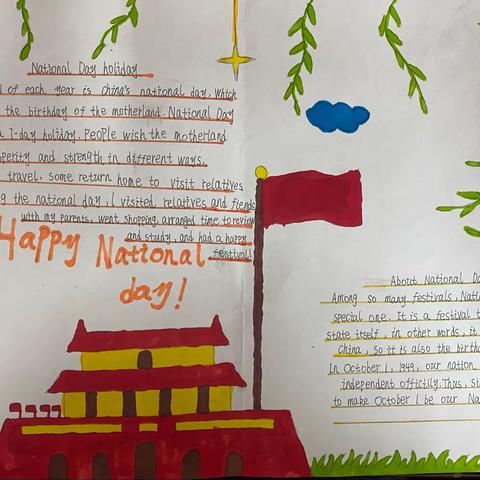 National Day holiday
of each year is China's national day, which
the birthday of the motherland. National Day
a 7-day holiday. People wish the motherland
sperity and strength in different ways.
travel, some return home to visit relatives
g the national day, I visited relatives and fiends
with my parents, went shopping, arranged time to review
and study, and had a happy
festival!
Happy National
day!
About National Da
Among so many festivals, Nati
special one. It is a festival t
state itself, in other words, it
China, so it is also the birth
In October 1, 1949, our nation
independent officilly. Thus, si
to make October 1 be our Na